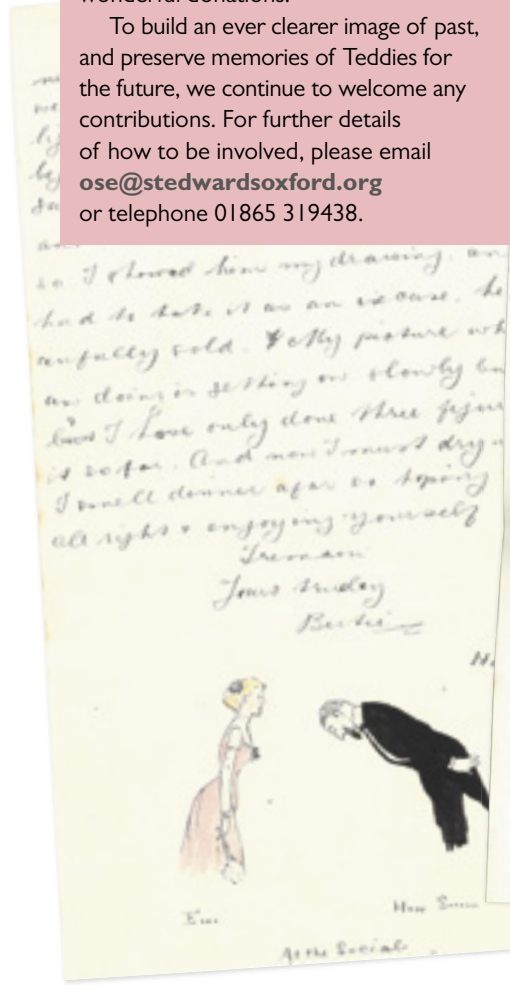 wonderful donations.
To build an ever clearer image of past,
and preserve memories of Teddies for
the future, we continue to welcome any
contributions. For further details
of how to be involved, please email
ose@stedwardsoxford.org
or telephone 01865 319438.
so I showed him my drawing. an
had to take it as an excuse. he
awfully cold. My picture wh
am doing is getting on slowly bu
I have only done three figur
it so far. And now I must dry u
I smell dinner afar so hoping
all right & enjoying yourself
I remain
Yours truly
Bertie
At the Social